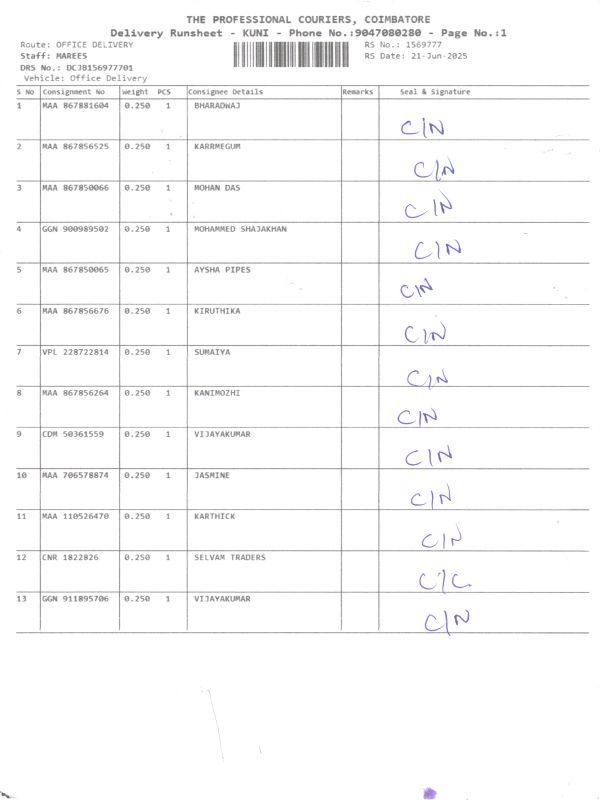 THE PROFESSIONAL COURIERS, COIMBATORE
Delivery Runsheet - KUNI - Phone No.:9047080280 - Page No.:1
Route: OFFICE DELIVERY RS No.: 1569777
Staff: MAREES RS Date: 21-Jun-2025
DRS No.: DCJB156977701
Vehicle: Office Delivery
S No Consignment No Weight PCS Consignee Details Remarks Seal & Signature
1 MAA 867881604 0.250 1 BHARADWAJ C/N
2 MAA 867856525 0.250 1 KARRMEGUM C/N
3 MAA 867850066 0.250 1 MOHAN DAS C/N
4 GGN 900989502 0.250 1 MOHAMMED SHAJAKHAN C/N
5 MAA 867850065 0.250 1 AYSHA PIPES C/N
6 MAA 867856676 0.250 1 KIRUTHIKA C/N
7 VPL 228722814 0.250 1 SUMAIYA C/N
8 MAA 867856264 0.250 1 KANIMOZHI C/N
9 CDM 50361559 0.250 1 VIJAYAKUMAR C/N
10 MAA 706578874 0.250 1 JASMINE C/N
11 MAA 110526470 0.250 1 KARTHICK C/N
12 CNR 1822826 0.250 1 SELVAM TRADERS C/C
13 GGN 911895706 0.250 1 VIJAYAKUMAR C/N